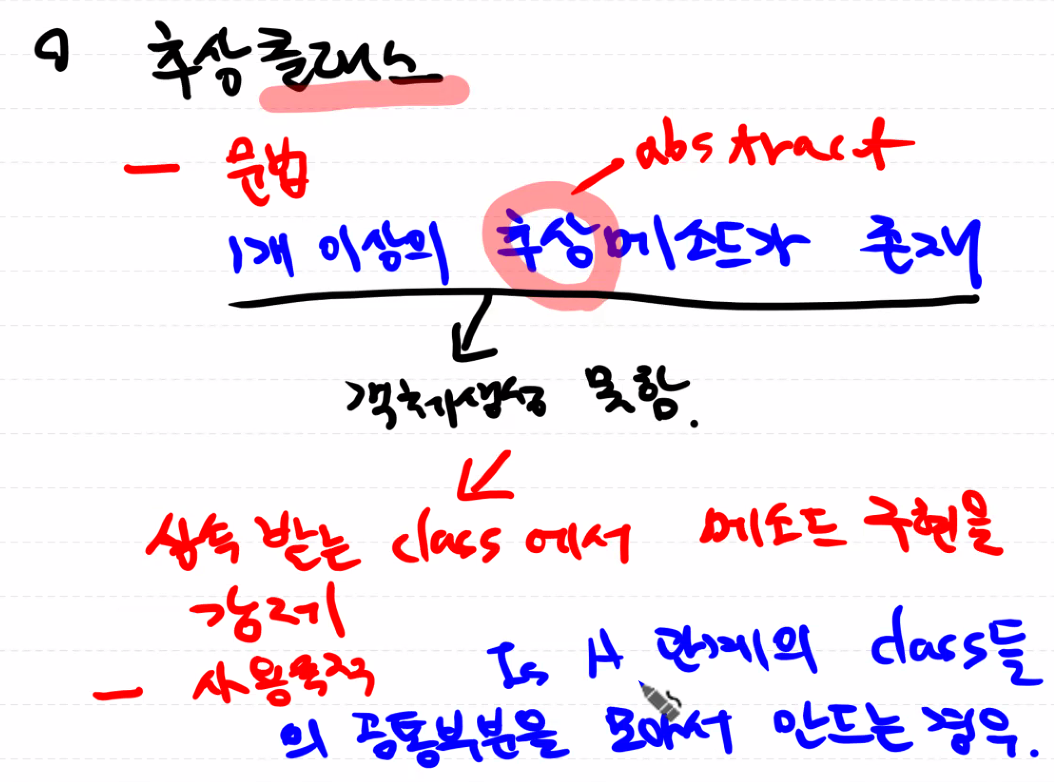 추상클래스
- 문법
abstract
1개 이상의 추상메소드가 존재
객체생성 못함.
상속 받는 class에서 메소드 구현을
강제
- 사용목적 Is A 관계의 class들
의 공통부분을 모아서 만드는 경우.